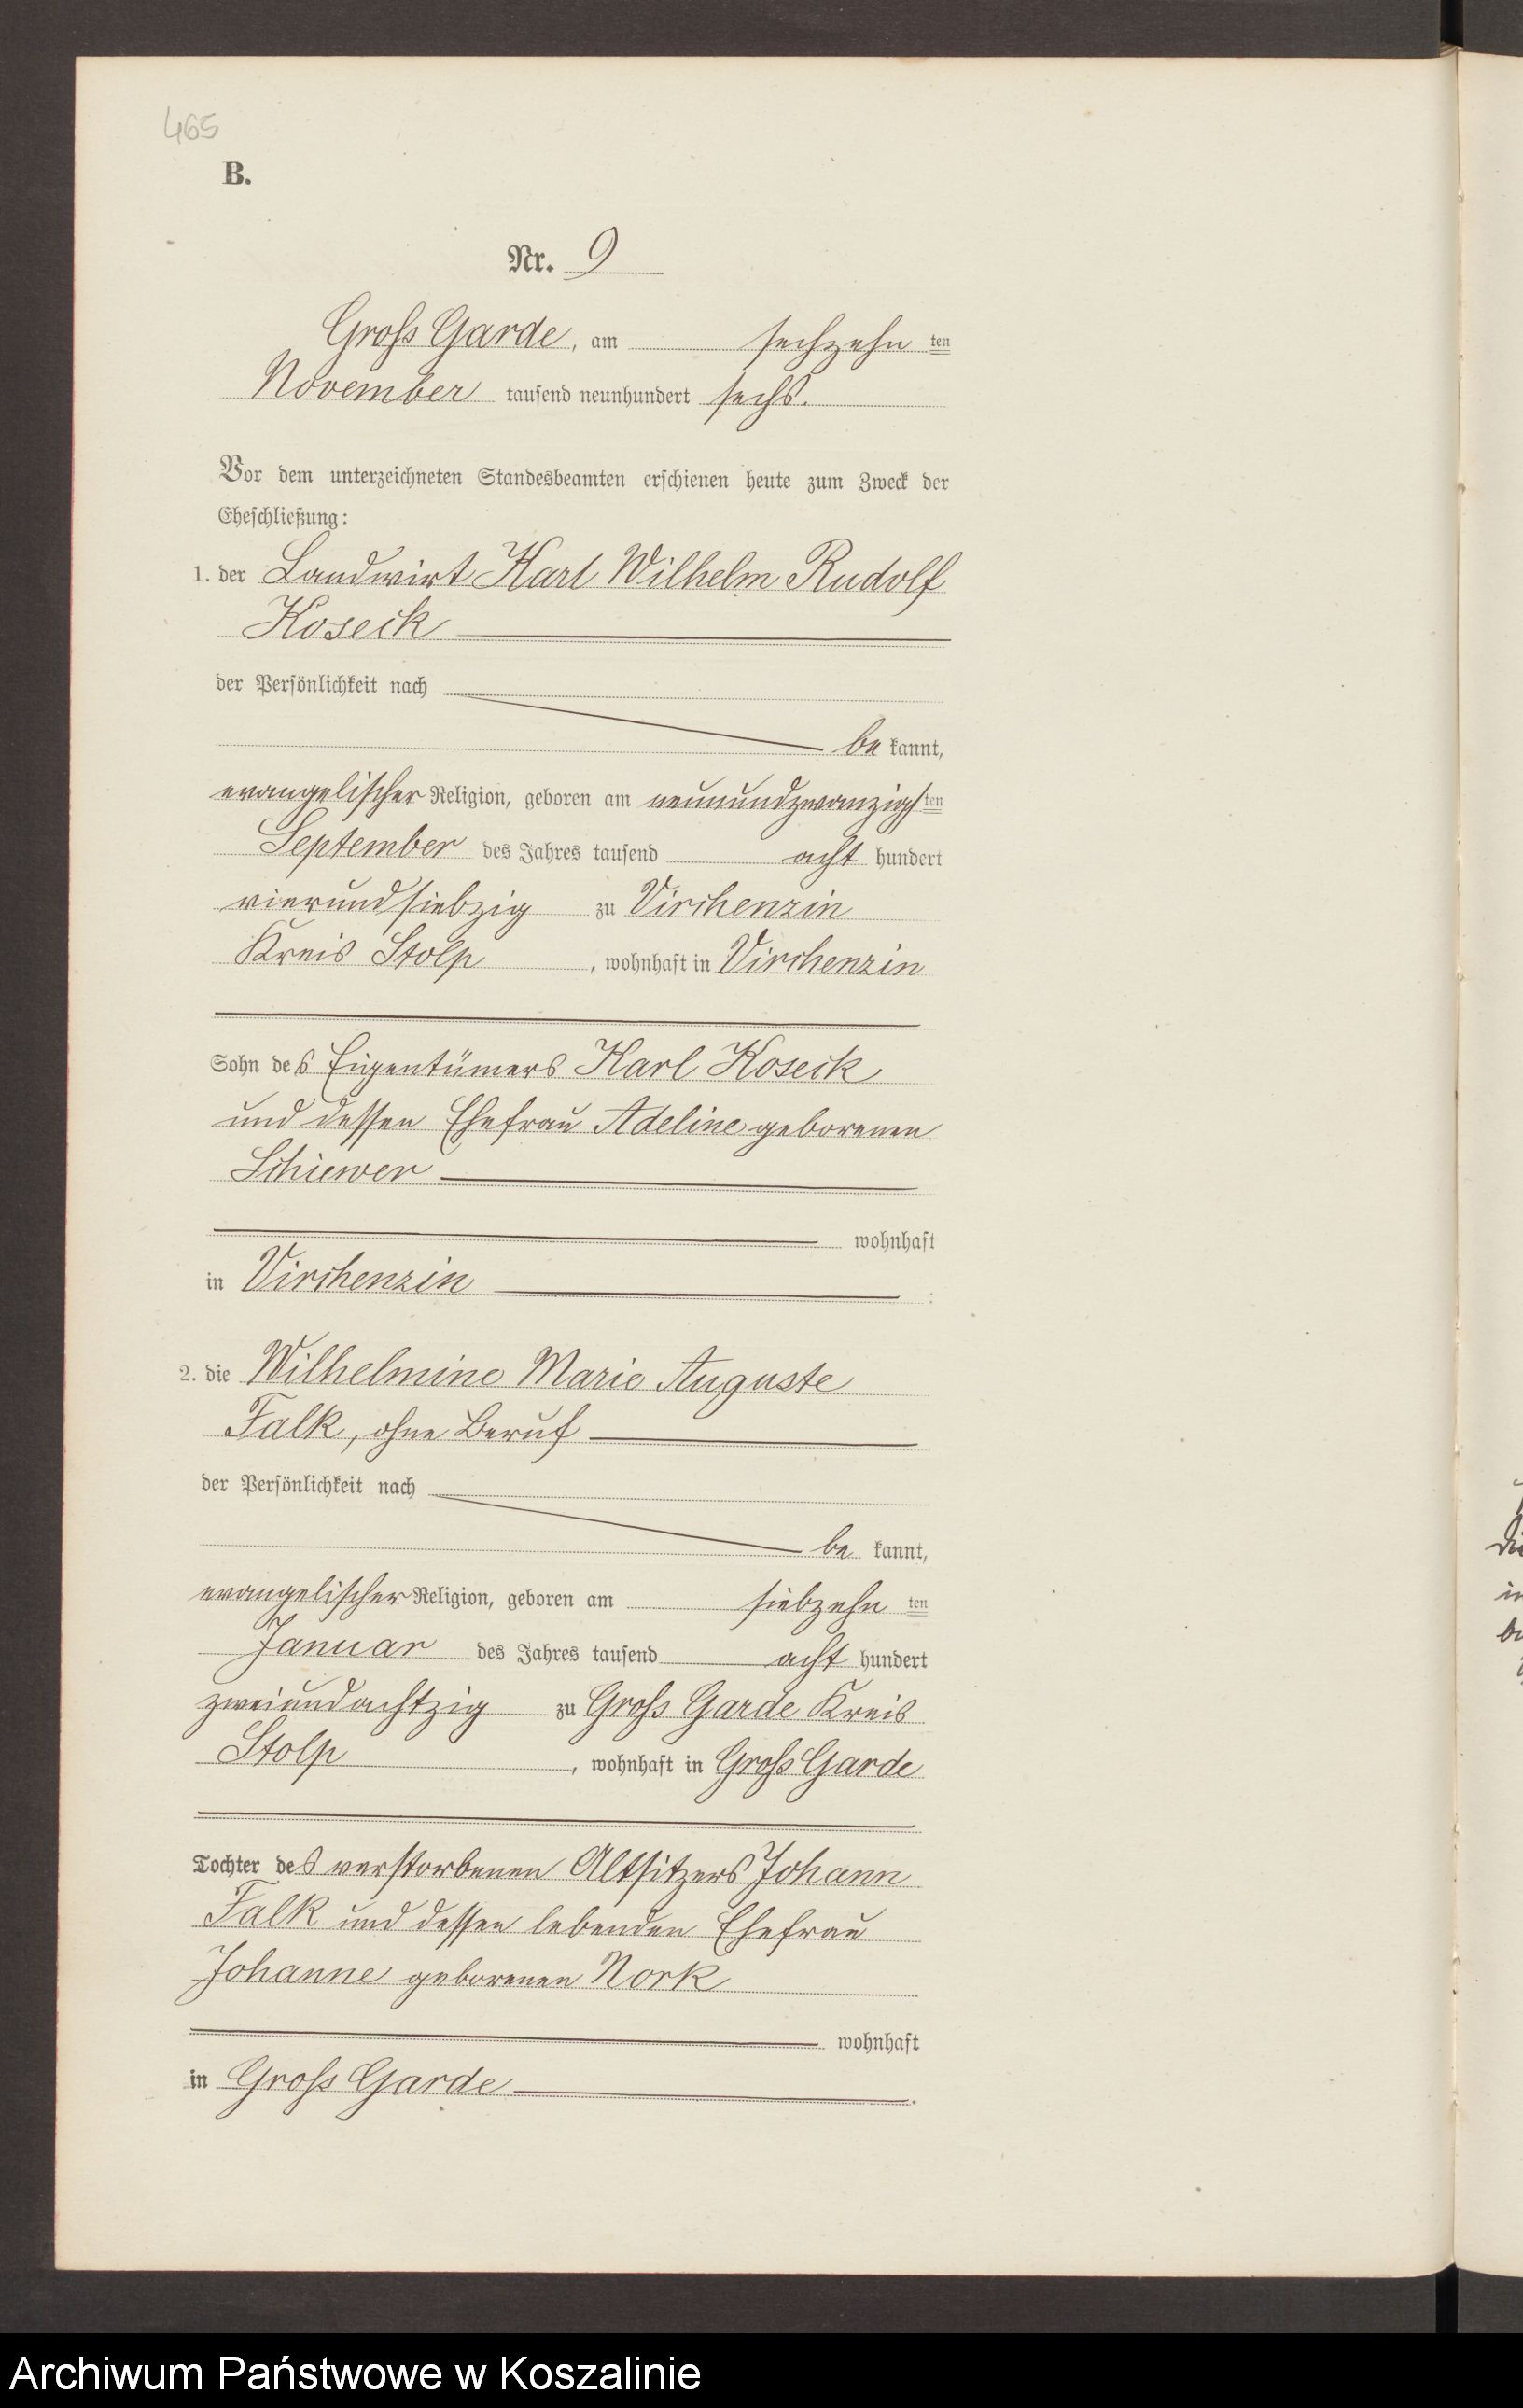 465
B.
Nr. 9
Gross Garde, am sechzehn ten
November tausend neunhundert sechs.
Vor dem unterzeichneten Standesbeamten erschienen heute zum Zweck der
Eheschließung:
1. der Landwirt Karl Wilhelm Rudolf
Koseik
der Persönlichkeit nach
be kannt,
evangelischer Religion, geboren am neunundzwanzigsten
September des Jahres tausend acht hundert
vierundsiebzig zu Virchenzin
Kreis Stolp, wohnhaft in Virchenzin
Sohn des Eigentümers Karl Koseik
und dessen Ehefrau Adeline geborenen
Schiewer
wohnhaft
in Virchenzin
2. die Wilhelmine Marie Auguste
Falk, ohne Beruf
der Persönlichkeit nach
be kannt,
evangelischer Religion, geboren am siebzehn ten
Januar des Jahres tausend acht hundert
zweiundachtzig zu Gross Garde Kreis
Stolp, wohnhaft in Gross Garde
Tochter des verstorbenen Altsitzers Johann
Falk und dessen lebenden Ehefrau
Johanne geborenen Nork
wohnhaft
in Gross Garde.
Archiwum Państwowe w Koszalinie